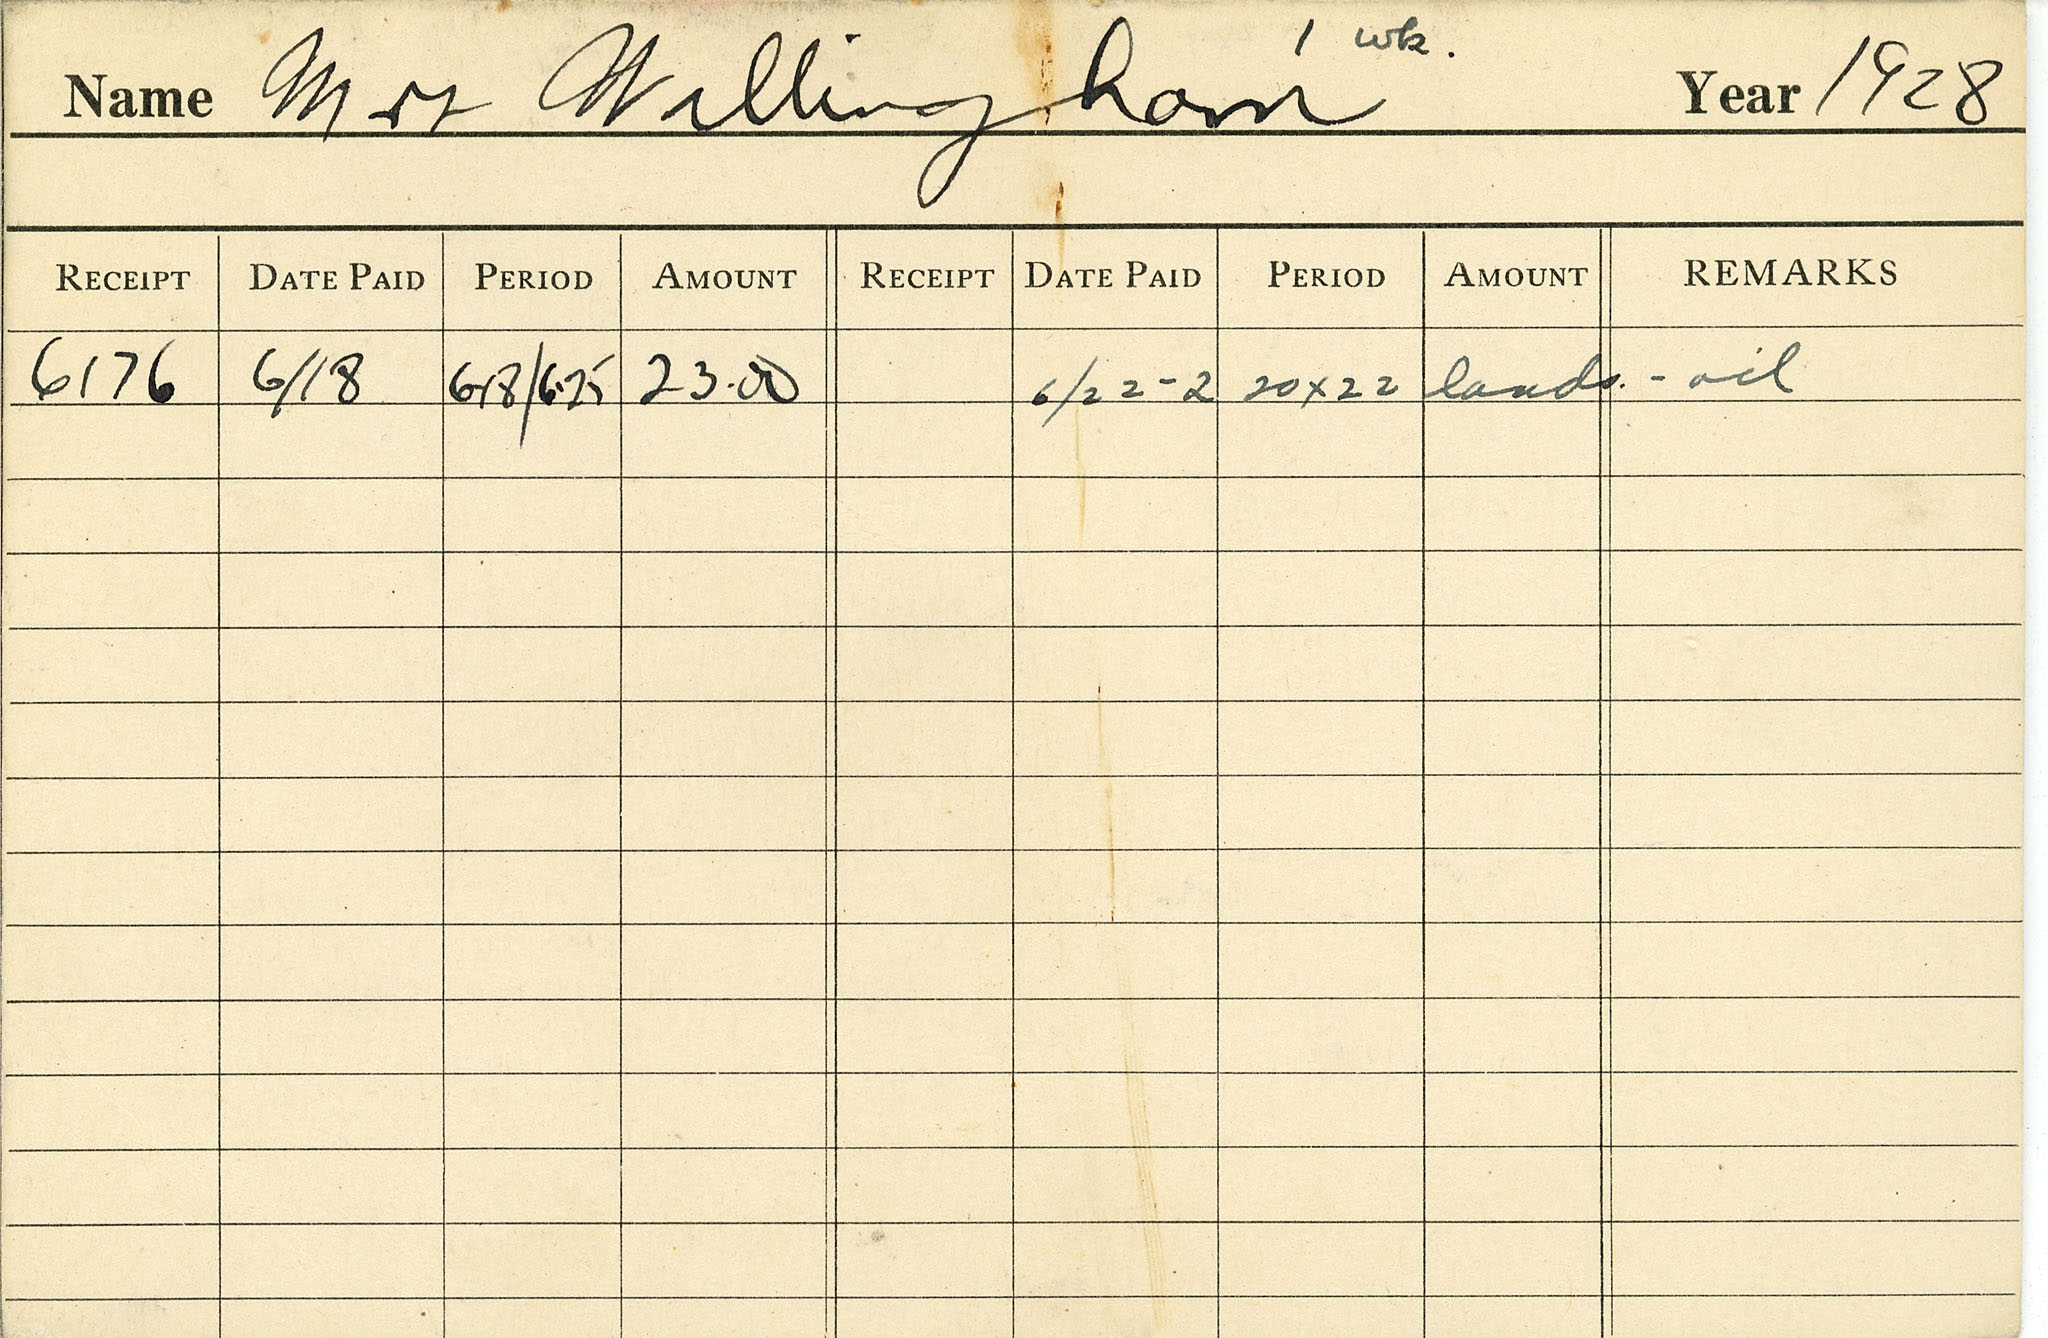 1 wk.
Name Mrs Willingham Year 1928
RECEIPT DATE PAID PERIOD AMOUNT RECEIPT DATE PAID PERIOD AMOUNT REMARKS
6176 6/18 6-18/6-25 23.00 6/22-2 20x22 lands. - oil